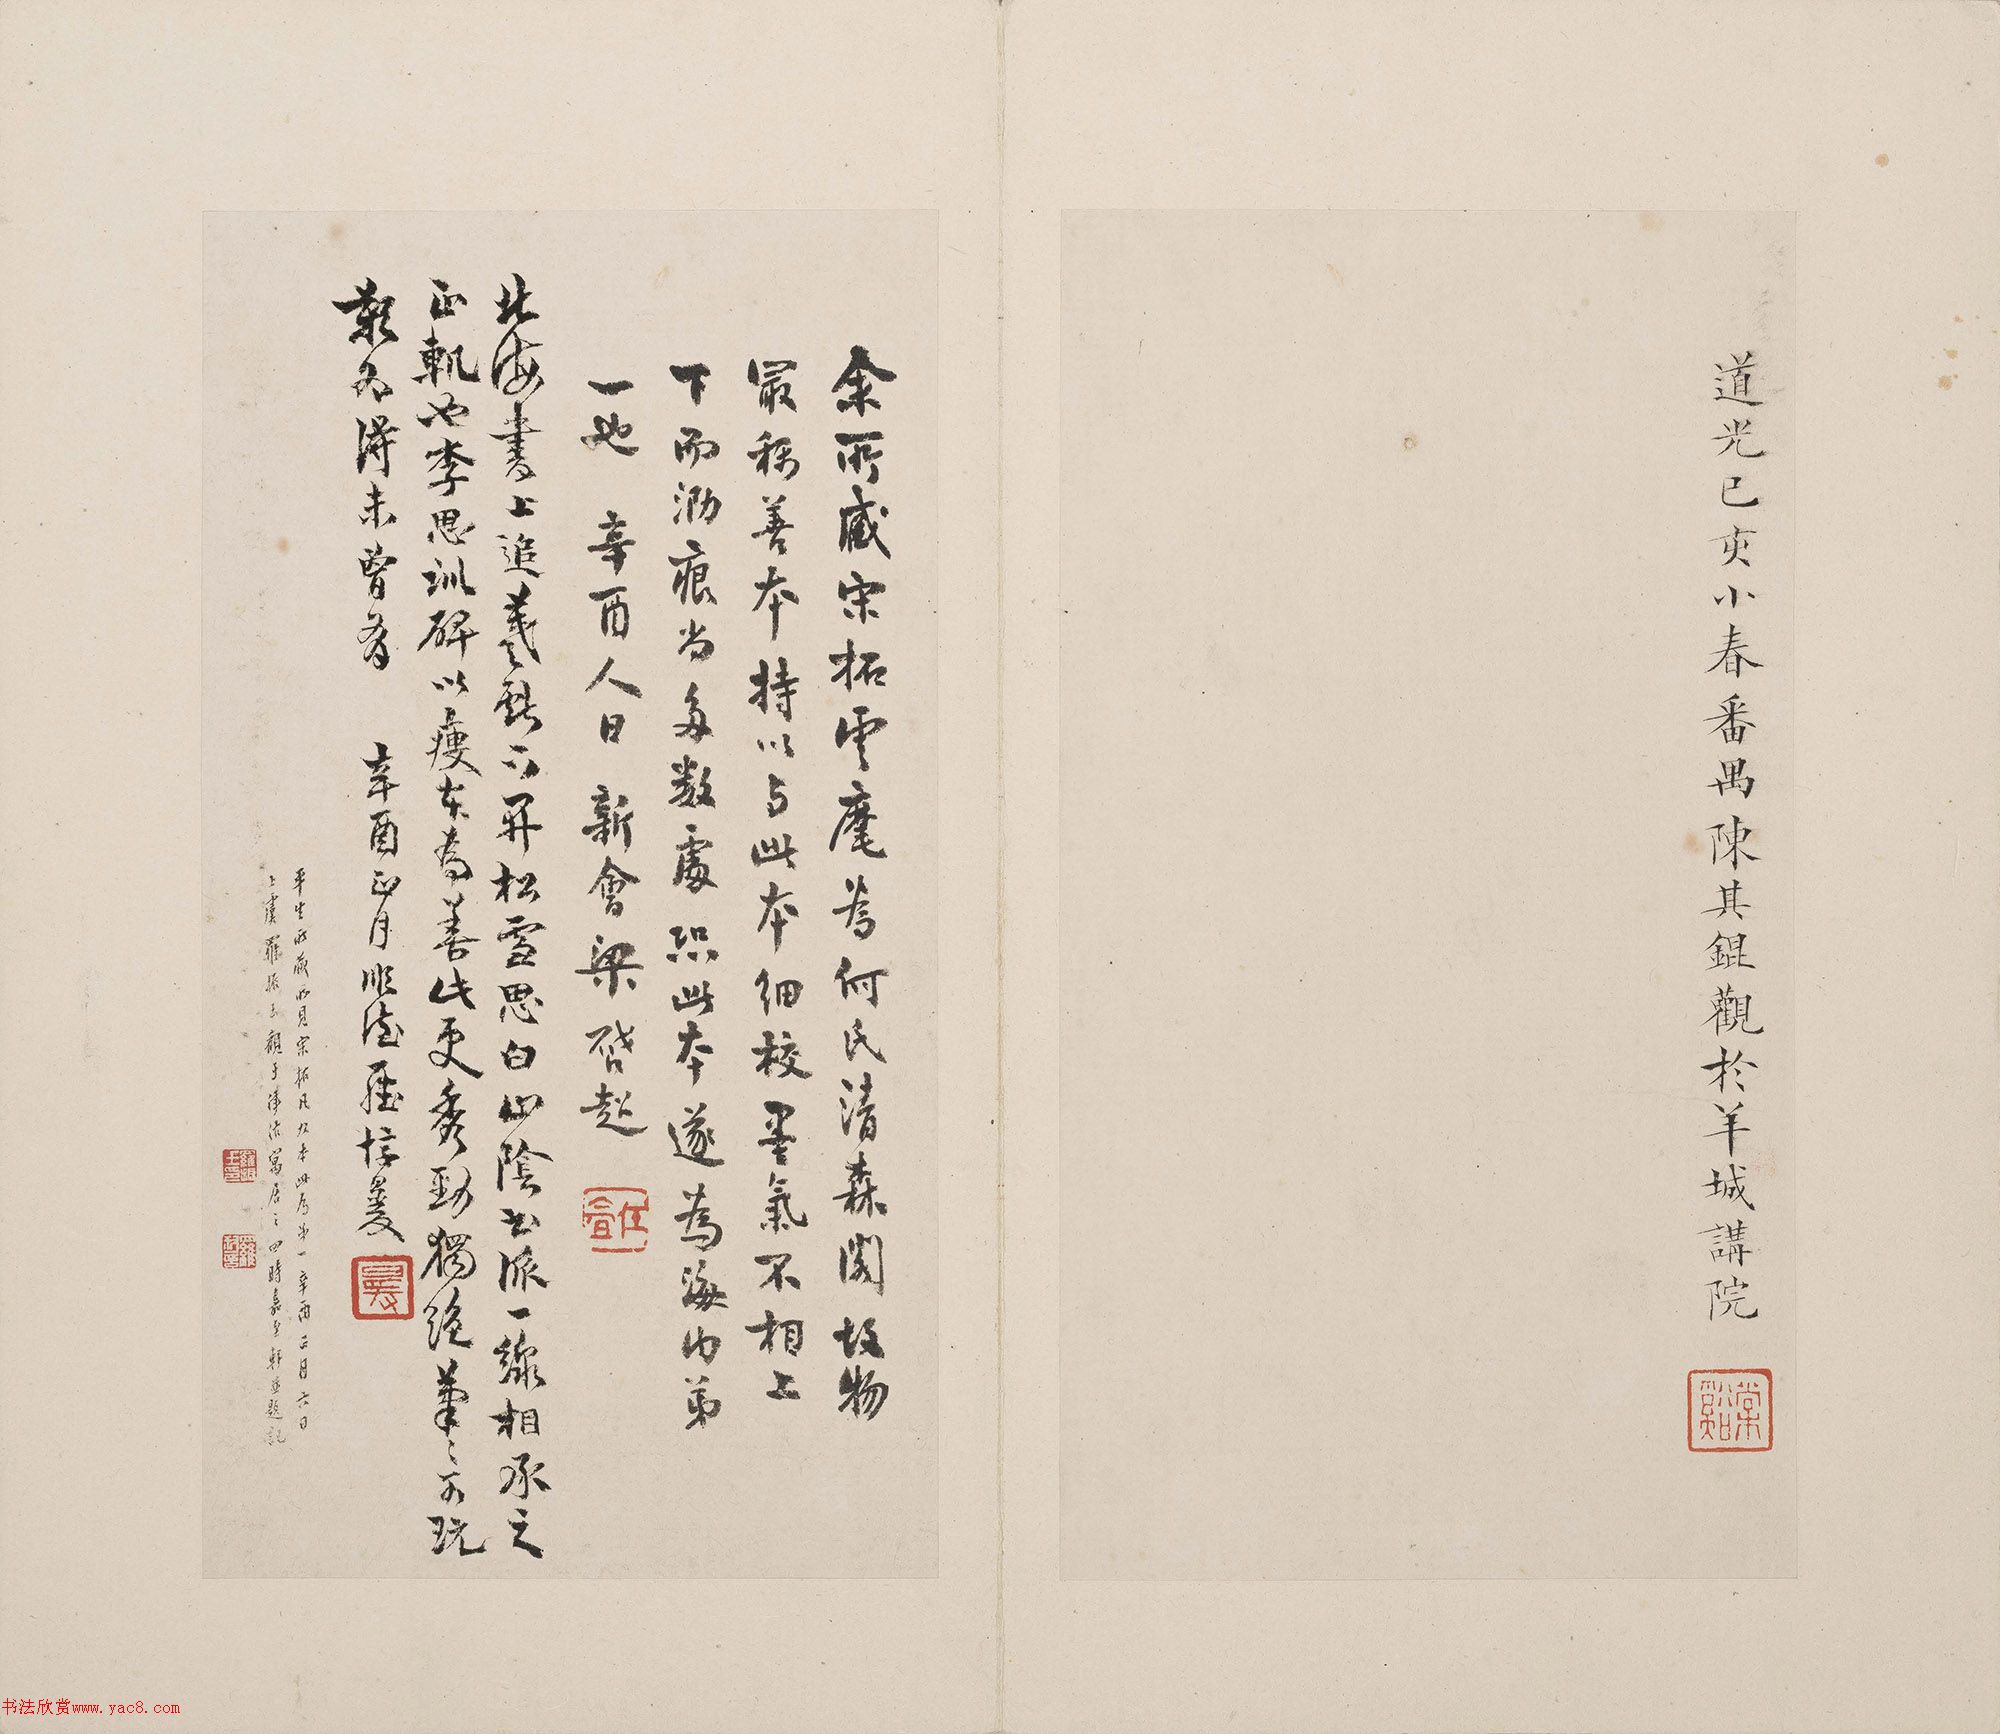 道光己亥小春番禺陳其錕觀於羊城講院
棠谿
余所藏宋拓雲麾為何氏清森閣故物
最稱善本持以與此本細校墨氣不相上
下而泐痕尚多數處然此本遂為海內弟
一也 辛酉人日 新會梁啓超
北海書上追羲獻下開松雪思白山陰書派一線相承之
正軌也李思訓碑以瘦本為善此更秀勁獨絕筆筆可玩
歎為得未曾有 辛酉正月順德羅惇㬊
平生所藏所見宋拓凡九本此為第一辛酉正月六日
上虞羅振玉觀于津沽寓居之四時嘉至軒並題記
書法欣赏www.yac8.com